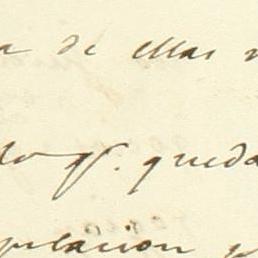 a de ellas
do qᵉ. queda
pulacion